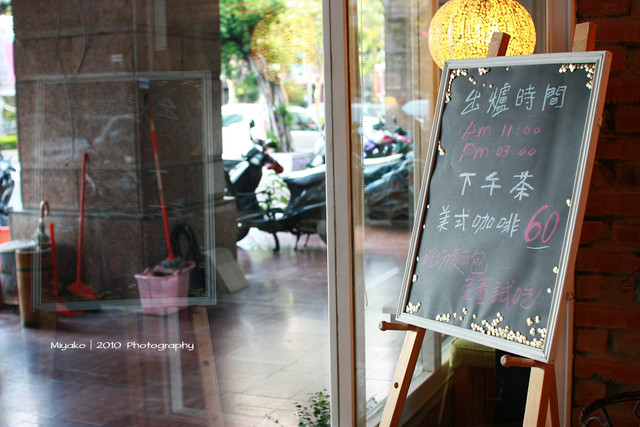 出爐時間
Am 11:00
Pm 03:00
下午茶
美式咖啡 60
Miyako | 2010 Photography